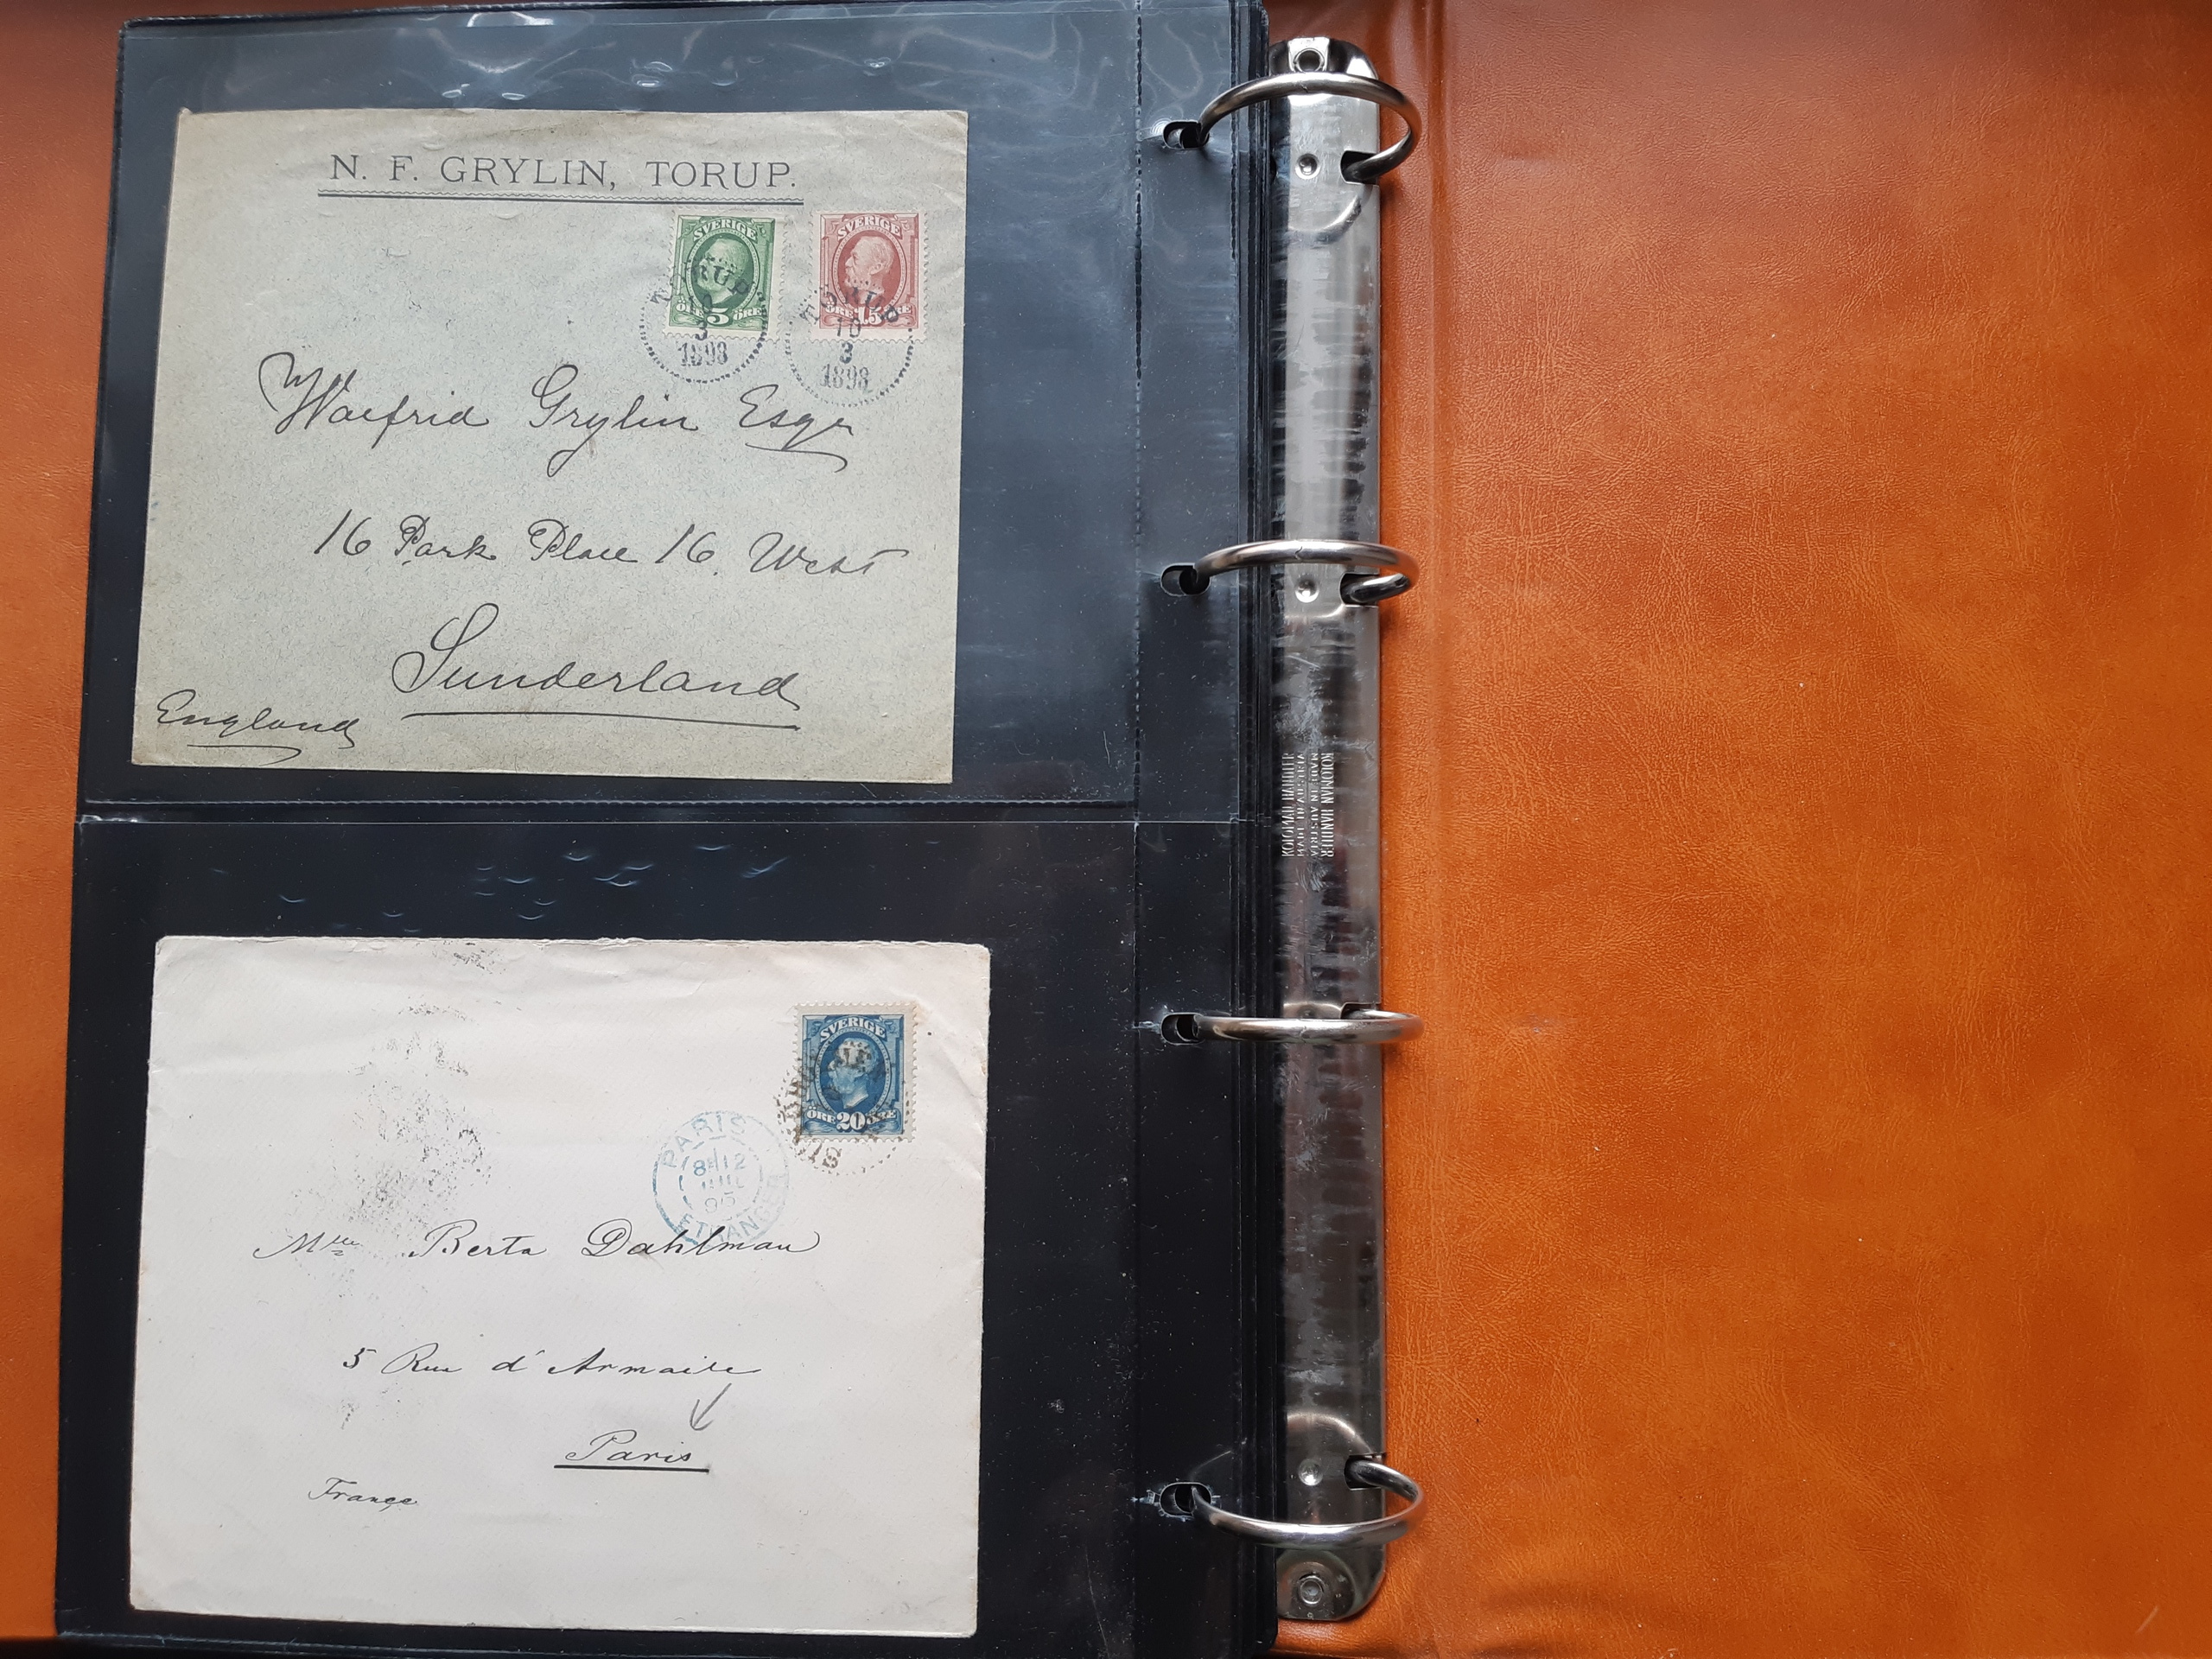 N. F. GRYLIN, TORUP.
SVERIGE
ÖRE 5 ÖRE
TORUP
3
1898
SVERIGE
ÖRE 15 ÖRE
TORUP
10
3
1898
Walfrid Grylin Esqr
16 Park Place 16. West
Sunderland
England
KOLOMAN HANDLER
MADE IN AUSTRIA
KOLOMAN HANDLER
SVERIGE
ÖRE 20 ÖRE
PARIS
12
JUIL
95
ETRANGER
Mlle Berta Dahlman
5 Rue d'Armaile
Paris
France